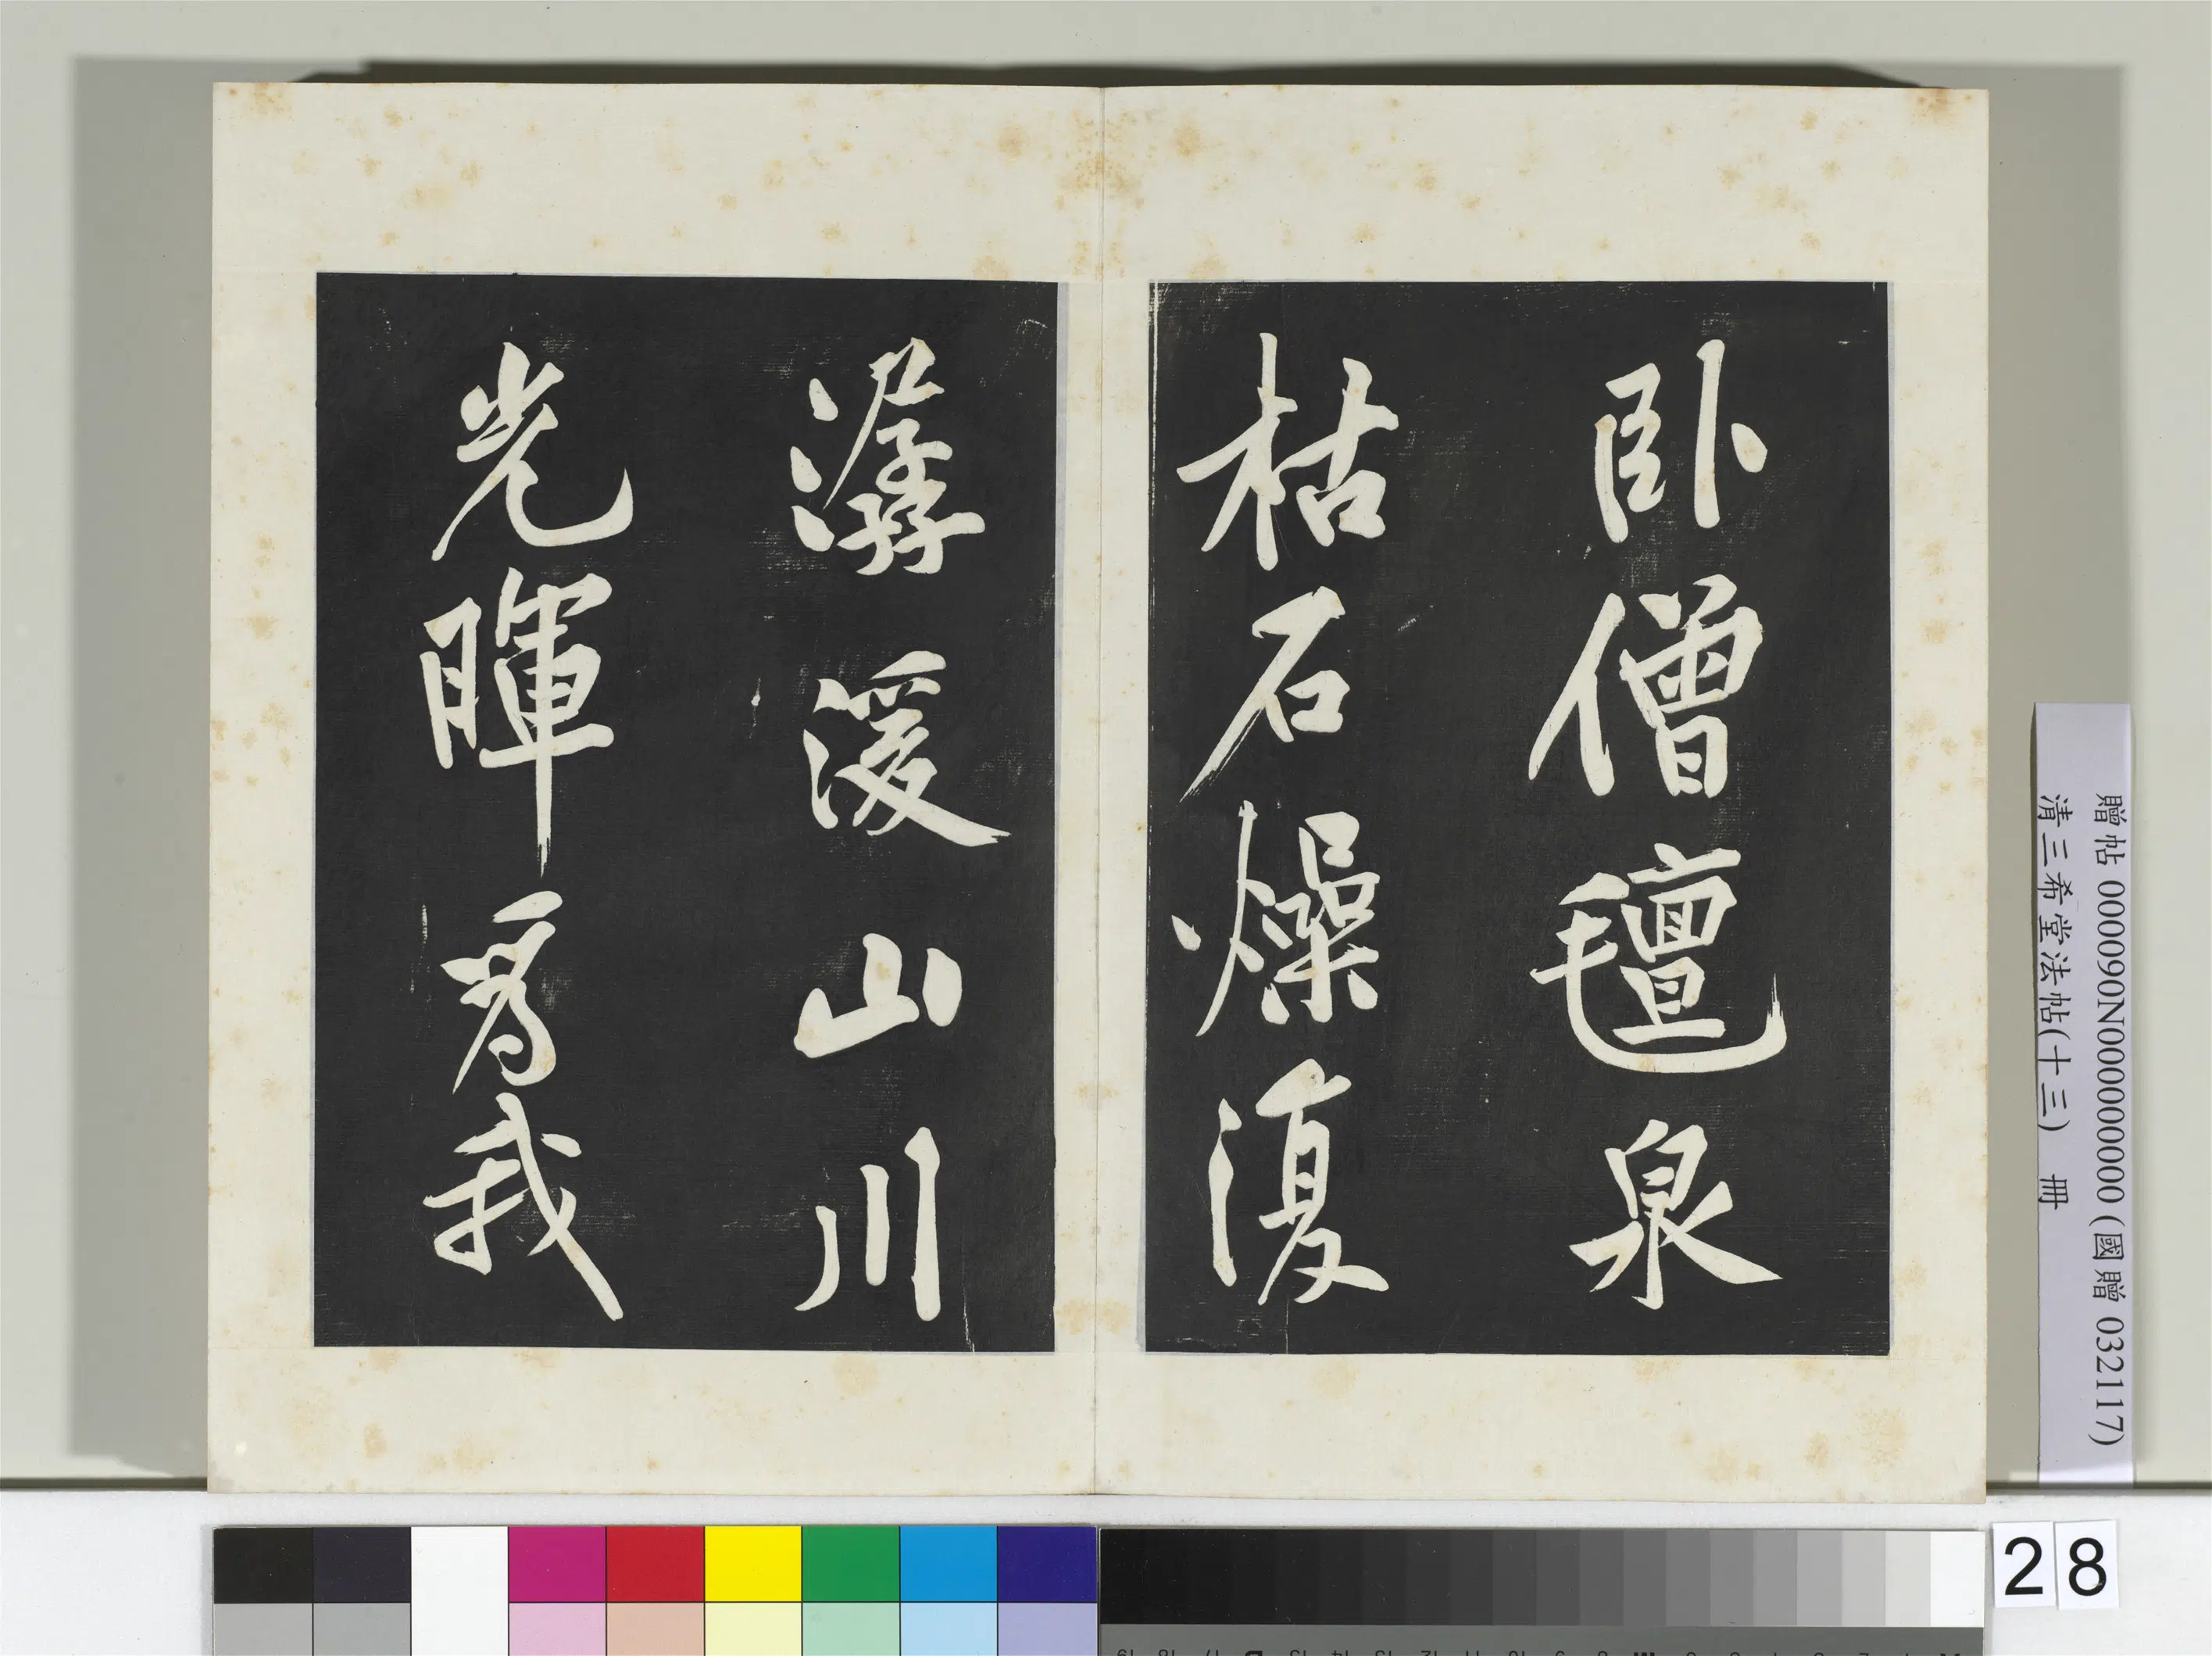 卧僧氊泉
枯石燥復
潺湲山川
光暉爲我
贈帖 000090N000000000 (國贈 032117)
清三希堂法帖(十三) 冊
28